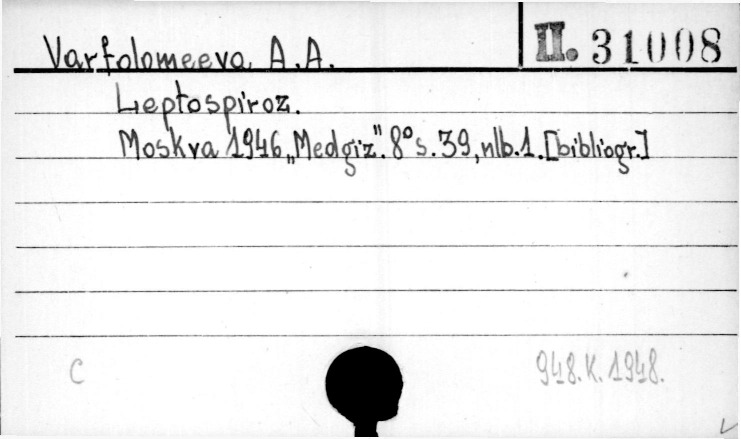 Varfolomeeva A.A.
II. 31008
Leptospiroz.
Moskva 1946 „Medgiz". 8° s. 39, nlb. 1. [bibliogr.]
C
948. K. 1948.